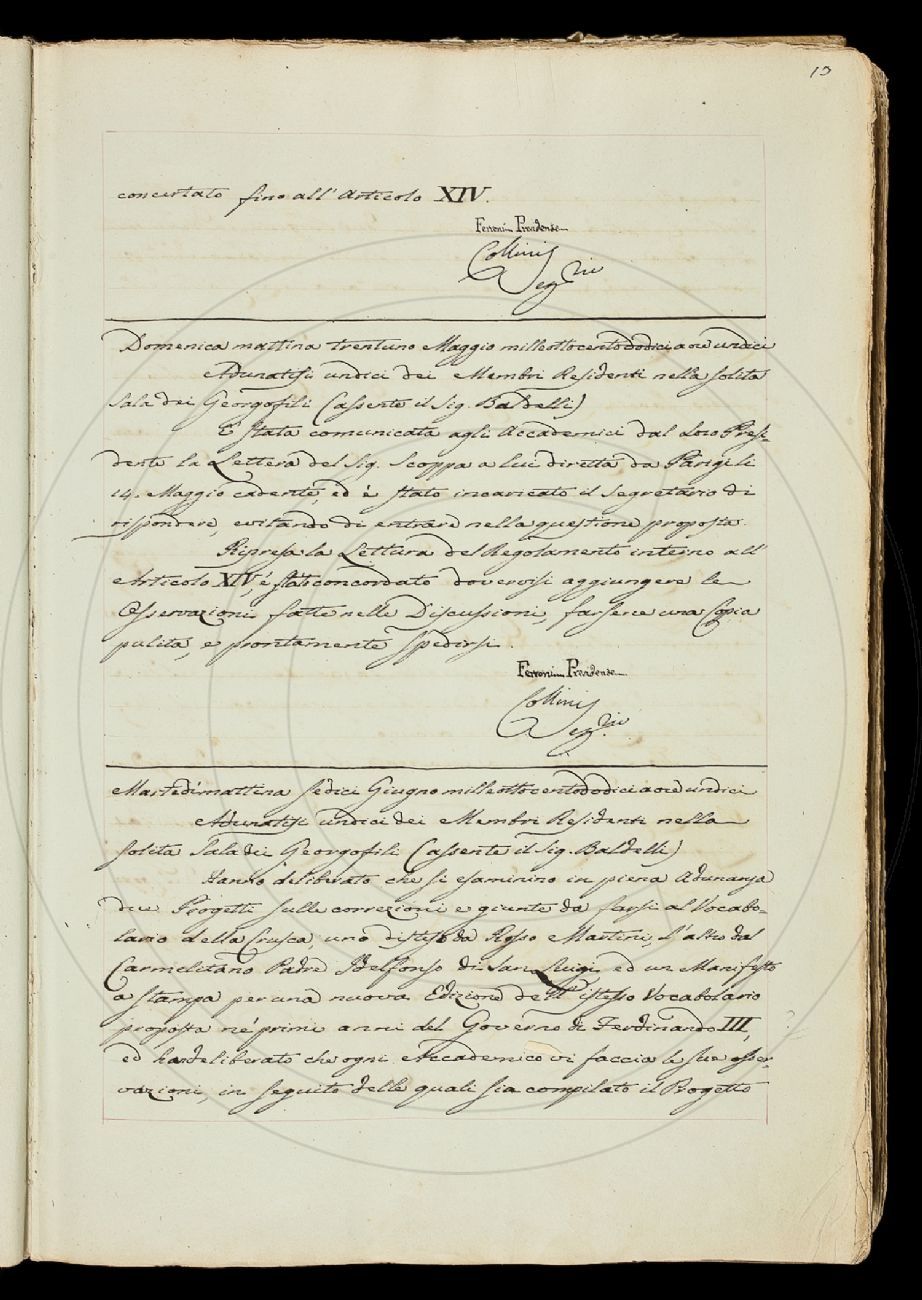 13
concertato fino all'Articolo XIV.
Ferroni Presidente
Collini
Segrio
Domenica mattina trentuno Maggio milleottocentododici a ore undici
Adunatisi undici dei Membri Residenti nella solita
Sala dei Georgofili (assente il Sig. Baldelli)
È stata comunicata agli Accademici dal loro Presi-
dente la Lettera del Sig. Scoppa a lui diretta da Parigi li
14. Maggio cadente, ed è stato incaricato il Segretario di
rispondere, evitando di entrare nella questione proposta.
Ripresa la Lettura del Regolamento interno all'
Articolo XIV, è stato concordato doversi aggiungere le
Osservazioni fatte nelle Discussioni, farsene una Copia
pulita, e prontamente spedirsi.
Ferroni Presidente
Collini
Segrio
Martedì mattina sedici Giugno milleottocentododici a ore undici
Adunatisi undici dei Membri Residenti nella
solita Sala dei Georgofili (assente il Sig. Baldelli)
Hanno deliberato che si esaminino in piena Adunanza
due Progetti sulle correzioni e giunte da farsi al Vocabo-
lario della Crusca, uno disteso da Rosso Martini, l'altro dal
Carmelitano Padre Idelfonso di San Luigi, ed un Manifesto
a stampa per una nuova Edizione dell'istesso Vocabolario
proposta ne' primi anni del Governo di Ferdinando III,
ed han deliberato che ogni Accademico vi faccia le sue osser-
vazioni, in seguito delle quali sia compilato il Progetto